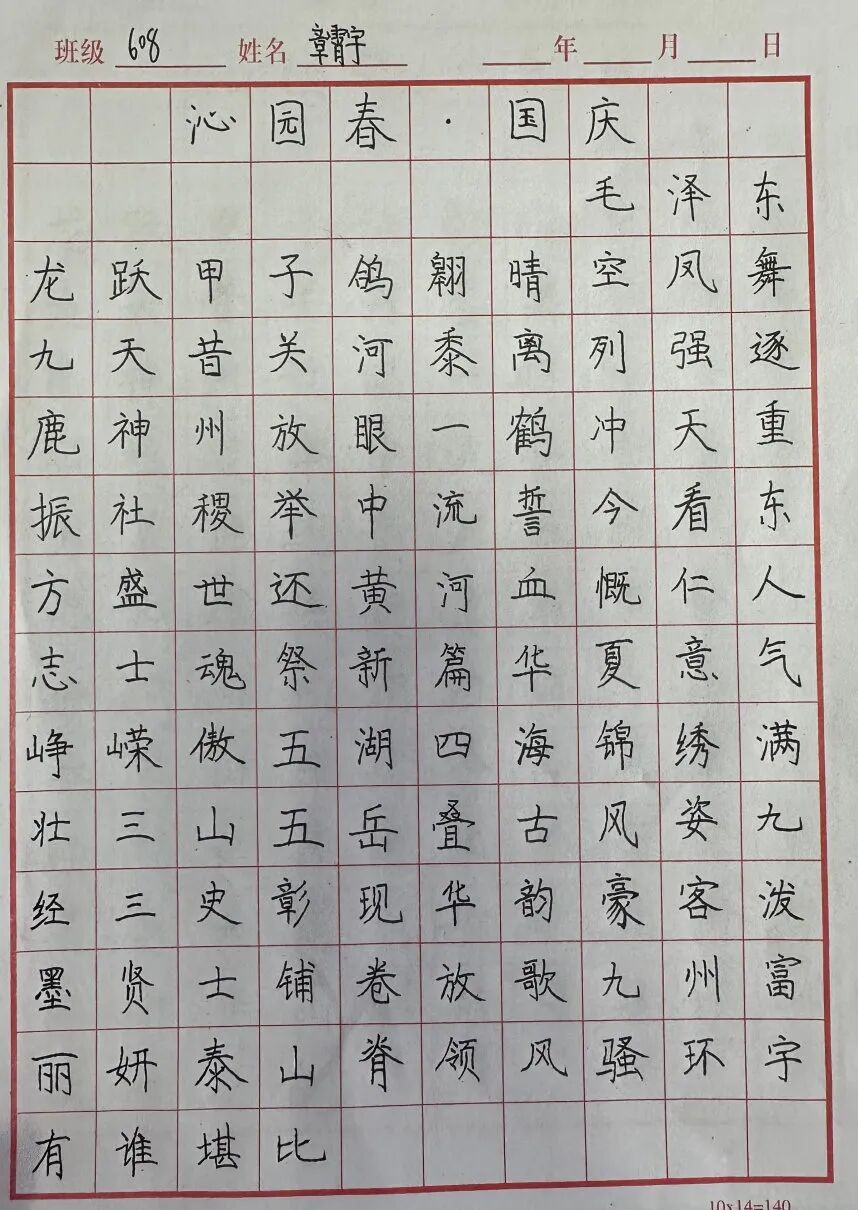 班级 608 姓名 章君宇 年 月 日
沁园春·国庆
毛泽东
龙跃甲子鸽翱晴空凤舞
九天昔关河黍离列强逐
鹿神州放眼一鹤冲天重
振社稷举中流誓今看东
方盛世还黄河血慨仁人
志士魂祭新篇华夏意气
峥嵘傲五湖四海锦绣满
壮三山五岳叠古风姿九
经三史彰现华韵豪客泼
墨贤士铺卷放歌九州富
丽妍泰山脊领风骚环宇
有谁堪比
10x14=140